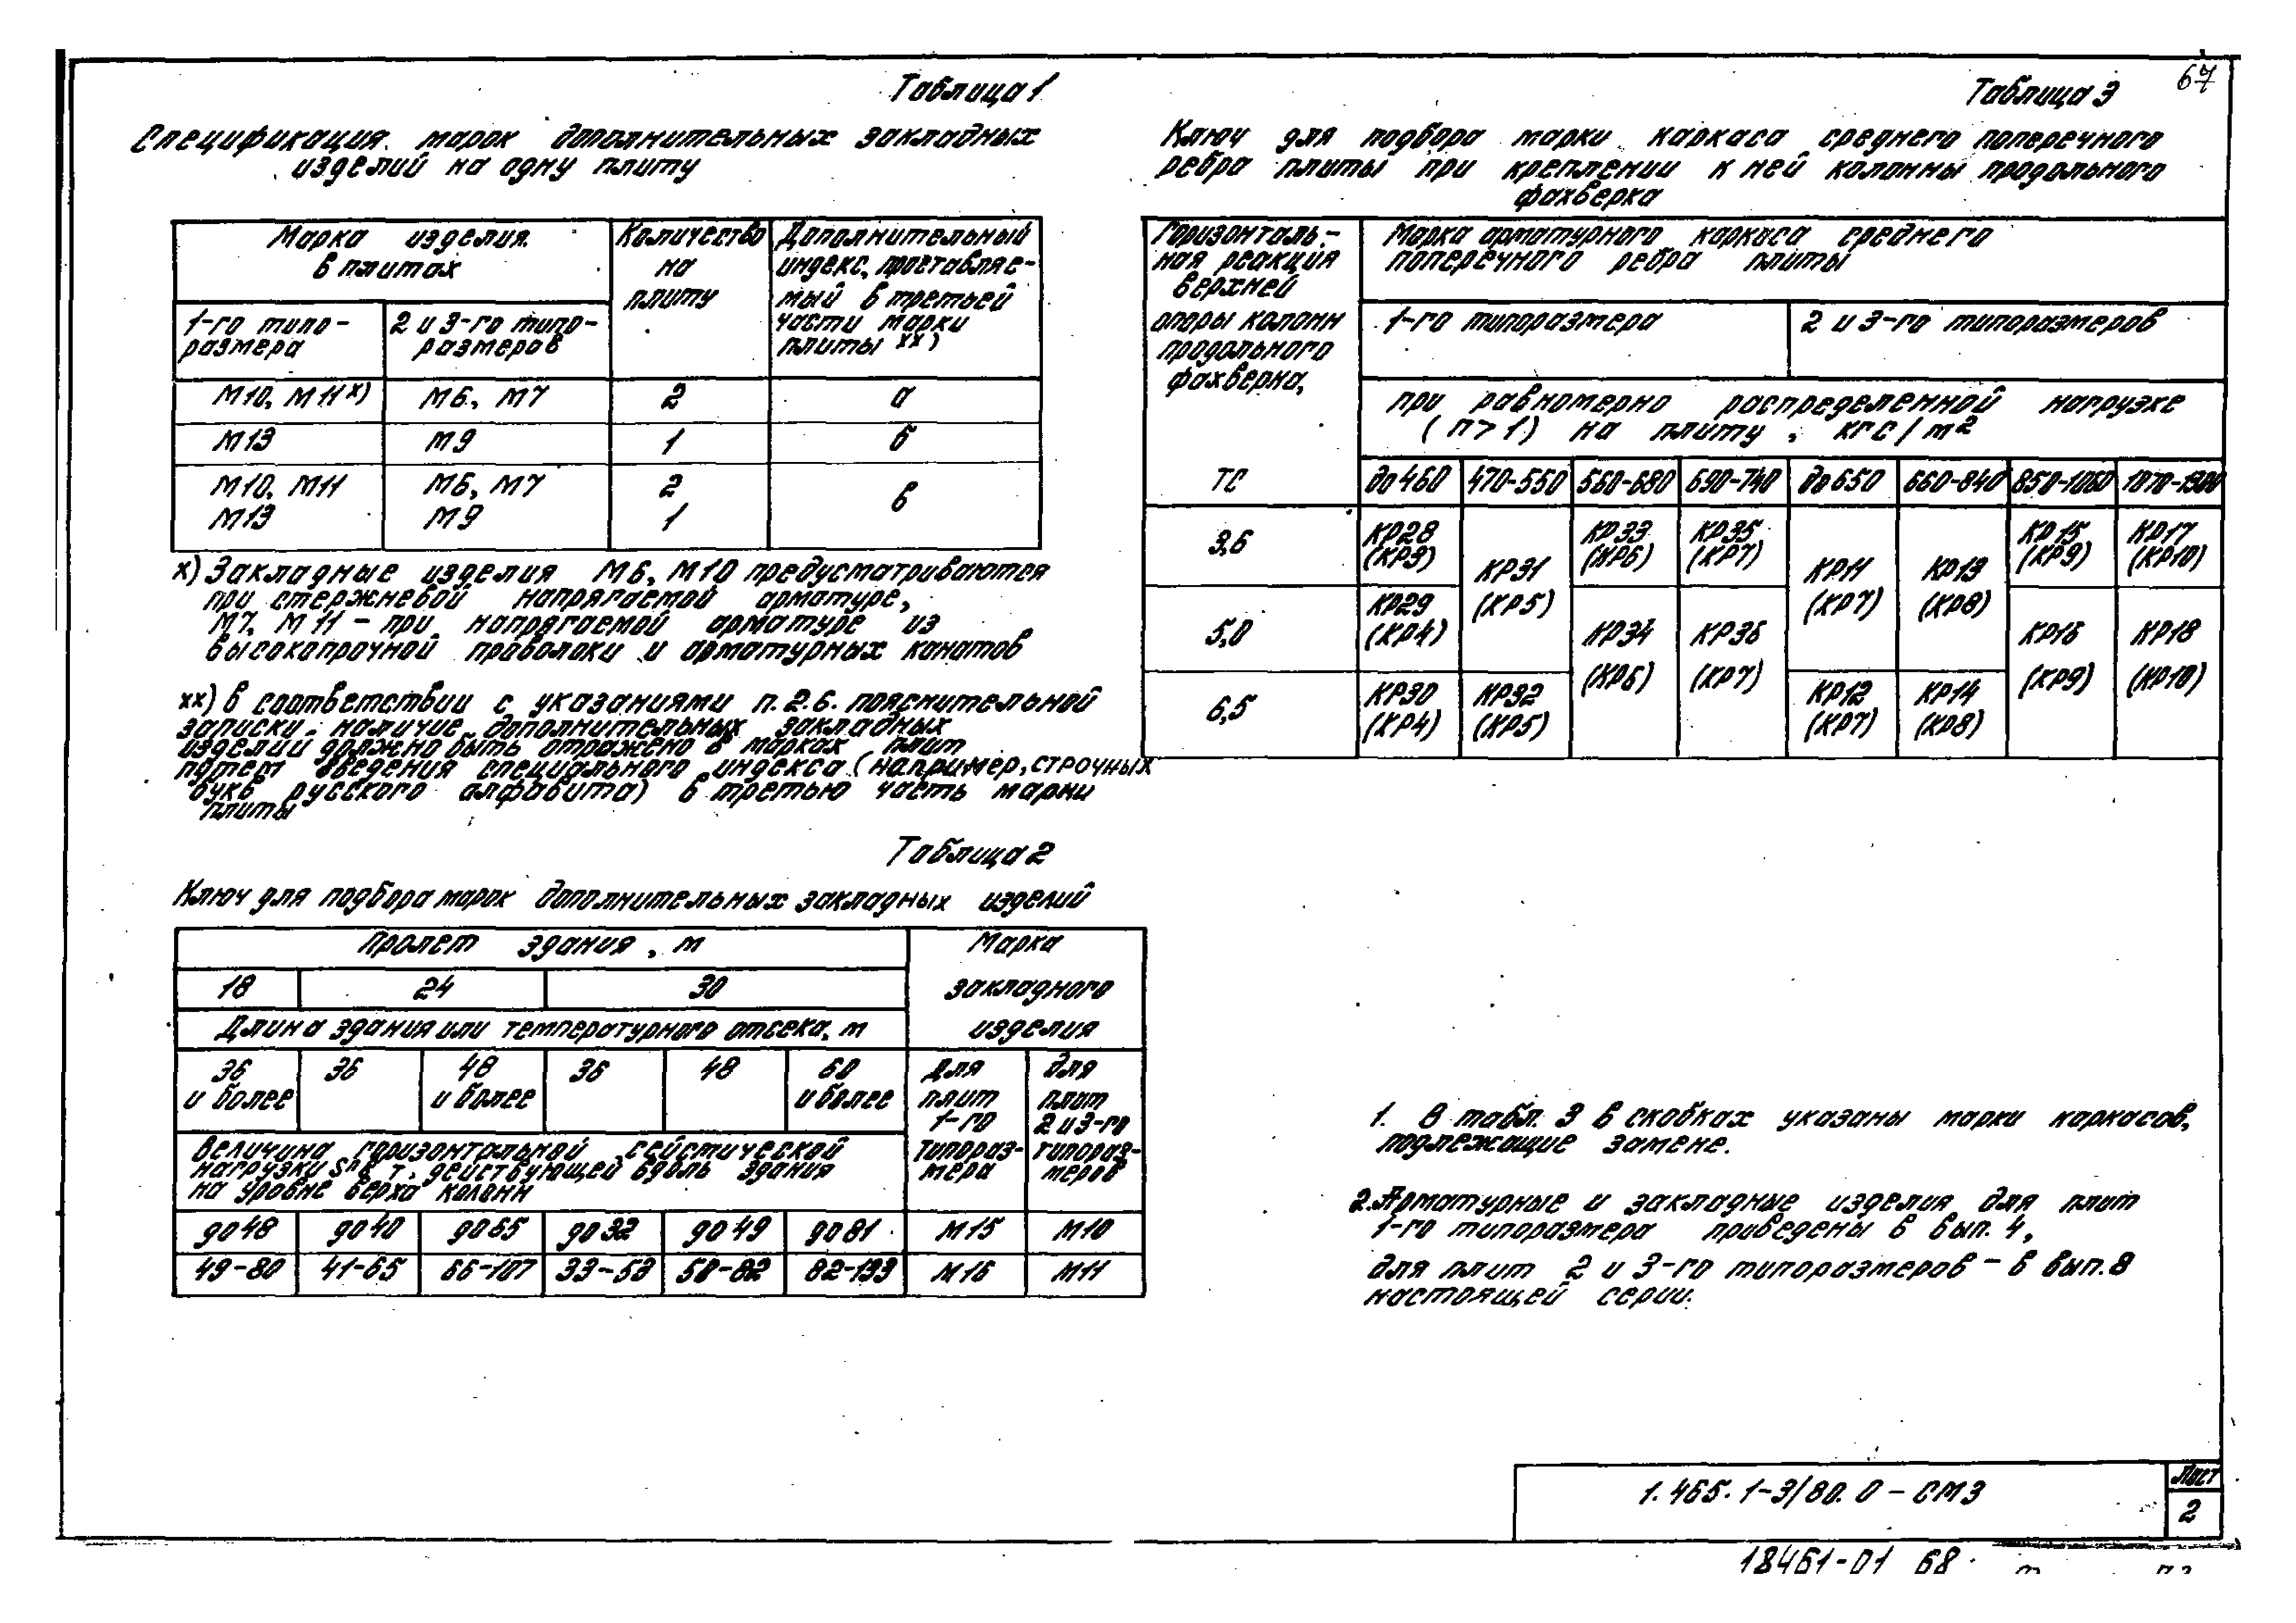 67
Таблица 1
Спецификация марок дополнительных закладных
изделий на одну плиту
Марка изделия
в плитах
Количество
на
плиту
Дополнительный
индекс, проставляе-
мый в третьей
части марки
плиты хх)
1-го типо-
размера
2 и 3-го типо-
размеров
М10, М11х) М6, М7 2 а
М13 М9 1 б
М10, М11 М6, М7 2
М13 М9 1
в
х) Закладные изделия М6, М10 предусматриваются
при стержневой напрягаемой арматуре,
М7, М11 – при напрягаемой арматуре из
высокопрочной проволоки и арматурных канатов
хх) В соответствии с указаниями п. 2.6. пояснительной
записки наличие дополнительных закладных
изделий должно быть отражено в марках плит
путем введения специального индекса (например, строчных
букв русского алфавита) в третью часть марки
плиты
Таблица 2
Ключ для подбора марок дополнительных закладных изделий
Пролет здания, м
Марка
закладного
изделия
18 24 30
Длина здания или температурного отсека, м
36
и более
36
48
и более
36
48
60
и более
для
плит
1-го
типораз-
мера
для
плит
2 и 3-го
типораз-
меров
Величина горизонтальной сейсмической
нагрузки, т, действующей вдоль здания
на уровне верха колонн
до 48 до 40 до 65 до 32 до 49 до 81 М15 М10
49-80 41-65 66-107 33-53 50-82 82-133 М16 М11
Таблица 3
Ключ для подбора марки каркаса среднего поперечного
ребра плиты при креплении к ней колонны продольного
фахверка
Горизонталь-
ная реакция
верхней
опоры колонн
продольного
фахверка,
ТС
Марка арматурного каркаса среднего
поперечного ребра плиты
1-го типоразмера 2 и 3-го типоразмеров
при равномерно распределенной нагрузке
(п>1) на плиту, кгс/м²
до 460 470-550 560-680 690-740 до 650 660-840 850-1060 1070-1300
3,6
КР28
(КР3)
КР31
(КР5)
КР33
(КР6)
КР35
(КР7)
КР11
(КР7)
КР13
(КР8)
КР15
(КР9)
КР17
(КР10)
5,0
КР29
(КР4)
КР34
(КР6)
КР36
(КР7)
КР16
(КР9)
КР18
(КР10)
6,5
КР30
(КР4)
КР32
(КР5)
КР12
(КР7)
КР14
(КР8)
1. В табл. 3 в скобках указаны марки каркасов,
подлежащие замене.
2. Арматурные и закладные изделия для плит
1-го типоразмера приведены в вып. 4,
для плит 2 и 3-го типоразмеров – в вып. 8
настоящей серии.
1.465.1-3/80.0 - СМ3
Лист
2
18461-01 68